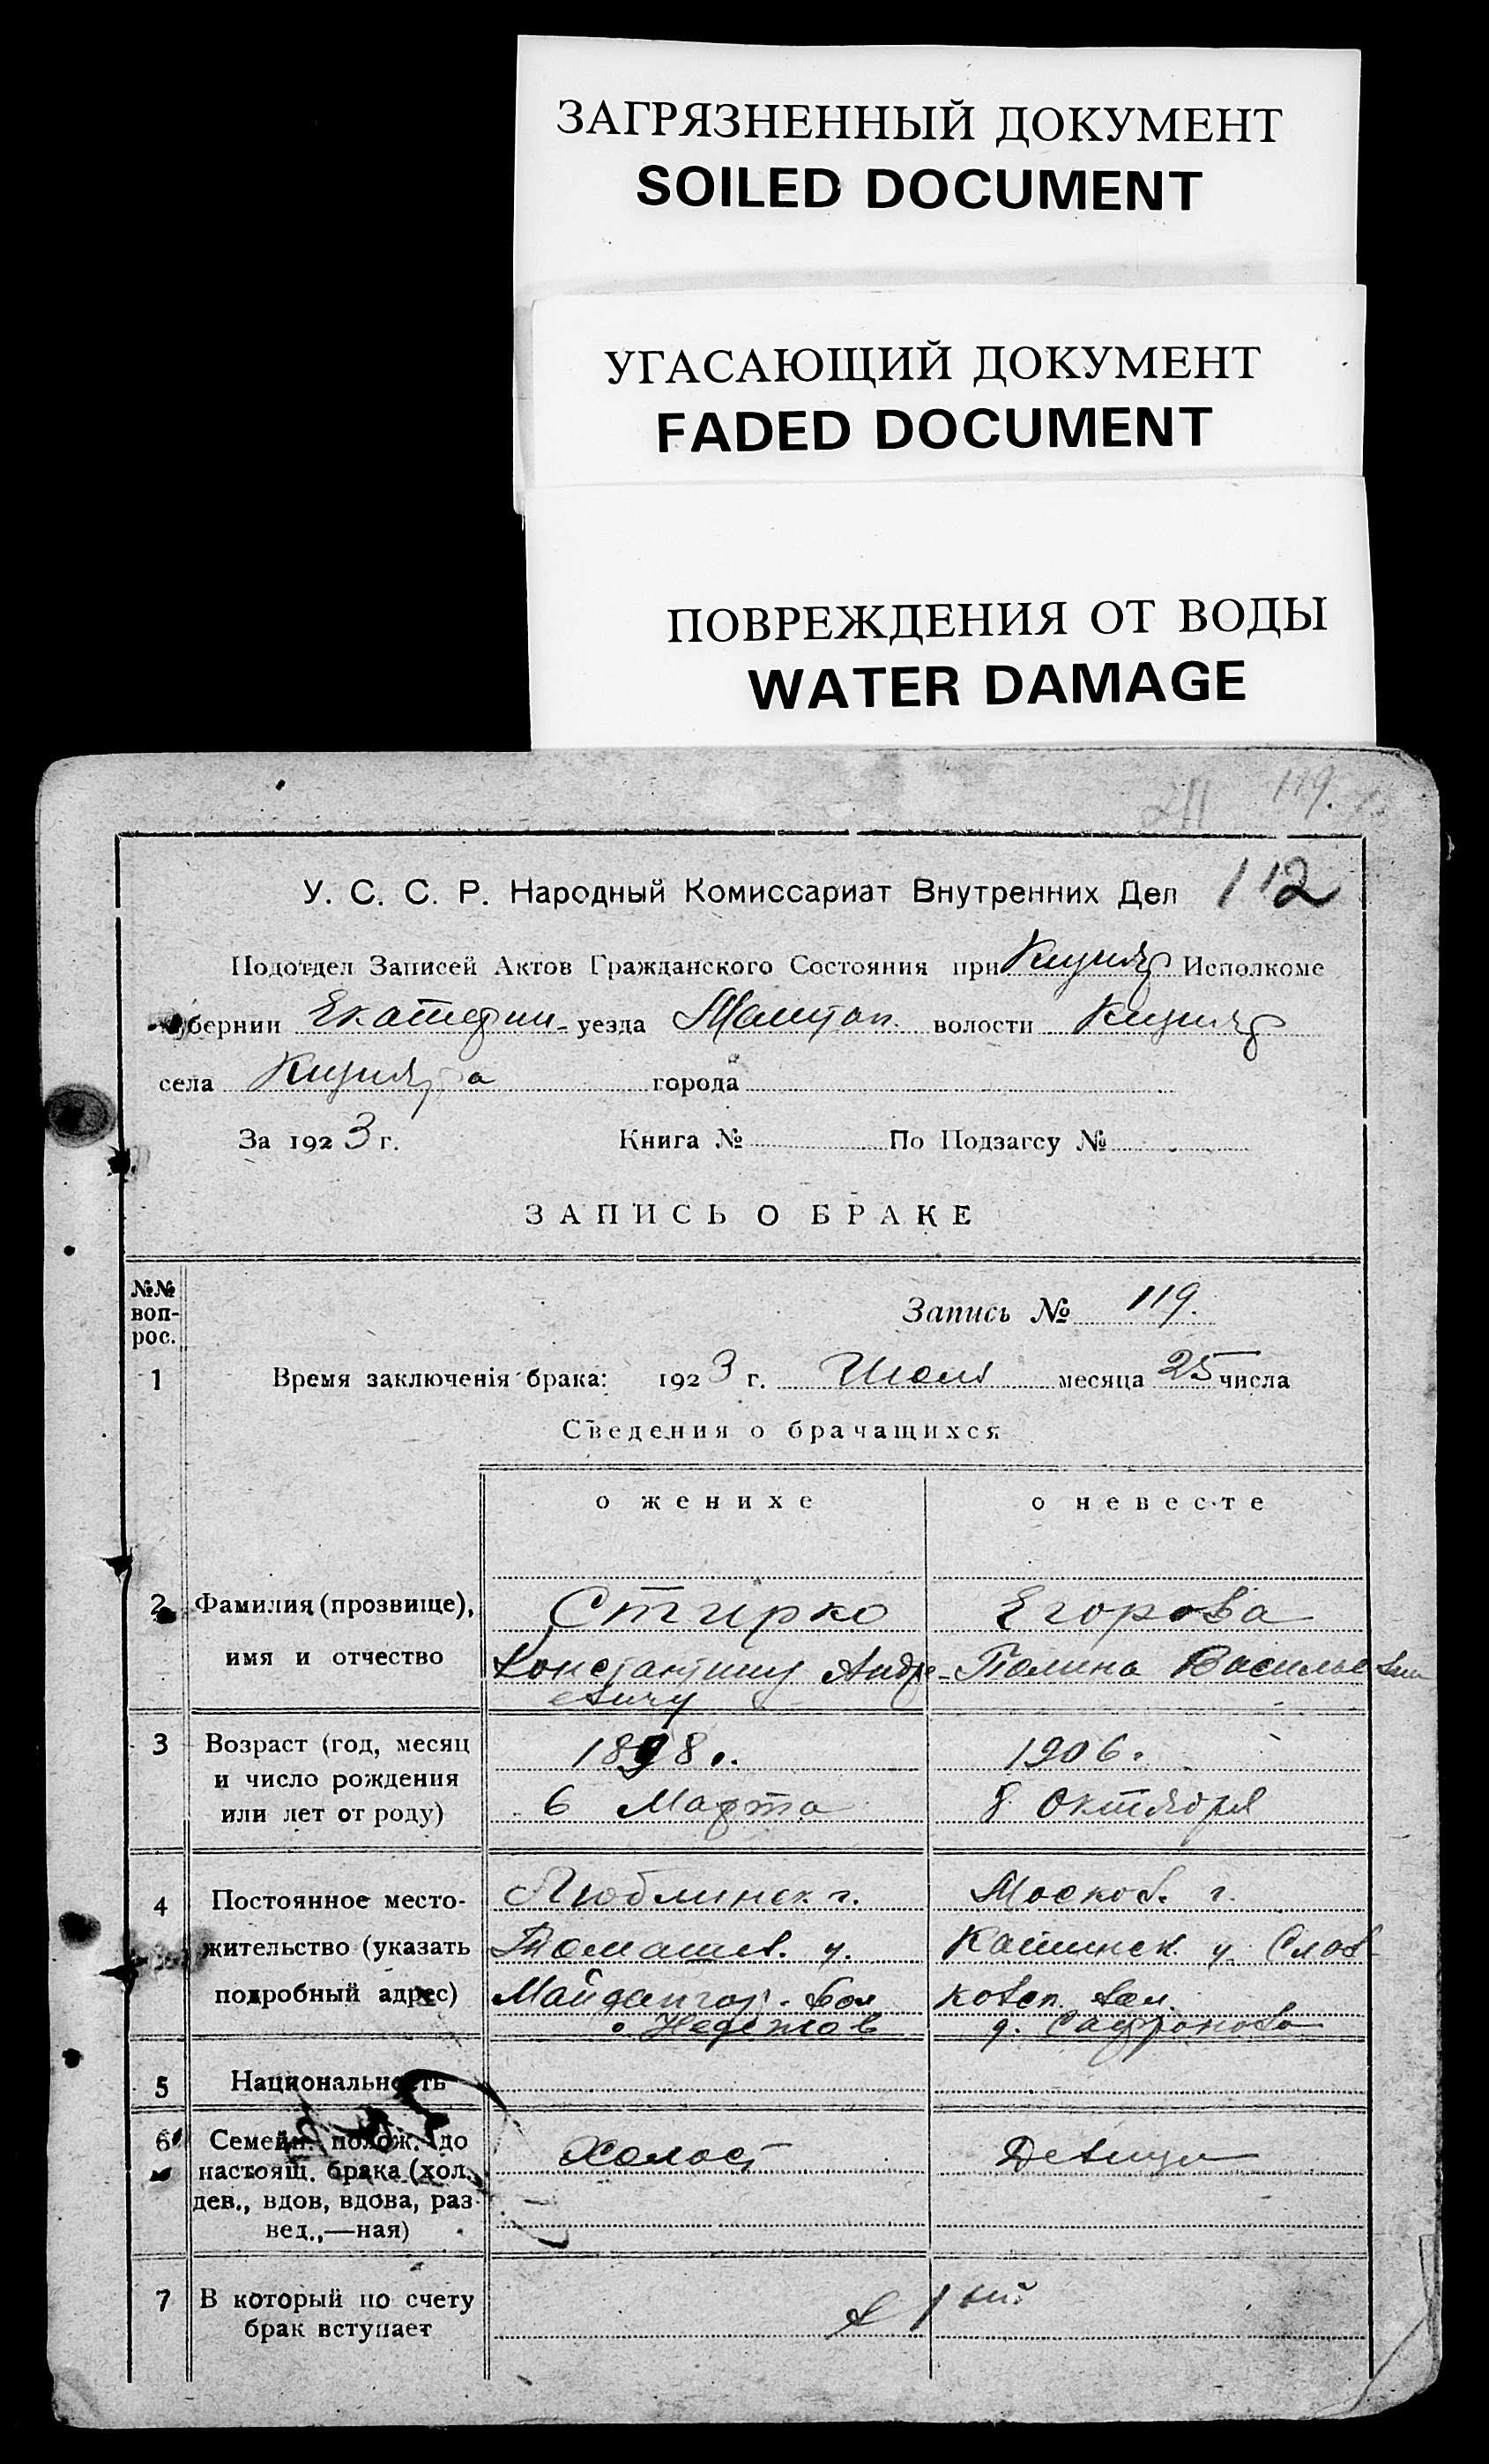 ЗАГРЯЗНЕННЫЙ ДОКУМЕНТ
SOILED DOCUMENT
УГАСАЮЩИЙ ДОКУМЕНТ
FADED DOCUMENT
ПОВРЕЖДЕНИЯ ОТ ВОДЫ
WATER DAMAGE
119.
У. С. С. Р. Народный Комиссариат Внутренних Дел 112
Подотдел Записей Актов Гражданского Состояния при Кизияр Исполкоме
губернии Екатерин- уезда Мелитоп. волости Кизияр
села Кизияра города
За 1923 г. Книга № По Подзагсу №
ЗАПИСЬ О БРАКЕ
№№ вопрос.
Запись № 119.
1 Время заключенія брака: 1923 г. Июля месяца 25 числа
Сведения о брачащихся
о женихе о невесте
2 Фамилия (прозвище), Стирко Егорова
имя и отчество Константину Андре- Полина Васильевна
евичу
3 Возраст (год, месяц 1898. 1906.
и число рождения
или лет от роду) 6 Марта 8 Октября
4 Постоянное место- Люблинск. г. Москов. г.
жительство (указать Томашев. у. Кашинск. у. Слав
подробный адрес) ковск. вол.
д. Сафроново
5 Национальность
6 Семейн. полож. до Холост Девица
настоящ. брака (хол.,
дев., вдов, вдова, раз
вед.,—ная)
7 В который по счету в 1ый
брак вступает